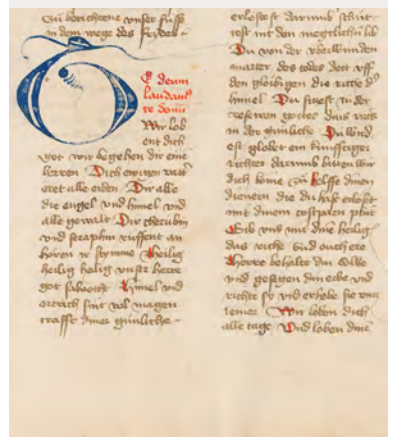 Zü berichtene vnser füsse
in dem wege des frydes
Te deum
laudam9
te dom
Wir lob
ent dich
got wir begehen dir eine
herren Dich ewigen vatt
eret alle erden Dir alle
die engel vnd himel vnd
alle gewalt Dir cherubin
vnd seraphin ruffent an
hören stymme Heilig
heilig heilig vnser herre
got sabaoth Himel vnd
ertrich sint vol magen
craffte diner günliche
erlosest darumb
test nit den megtlichn lib
Du von der vberwunden
marter des todes dott vff
den gloibigen die riche d
himel Du sitzest zu der
rehten gottes dins vatt
in der günliche Du wirdest
est globet ein künfftiger
richter darumb bitten wir
dich kome zü helffe dinen
dienern die du hast erlost
mit dinem costparen plüt
Gib vns mit dine heilig
das riche vnd ouch ere
Herre behalte din volke
vnd gesegen din erbe vnd
richte sy vnd erhebe sie vntz
iemer Wir loben dich
alle tage Vnd loben dine